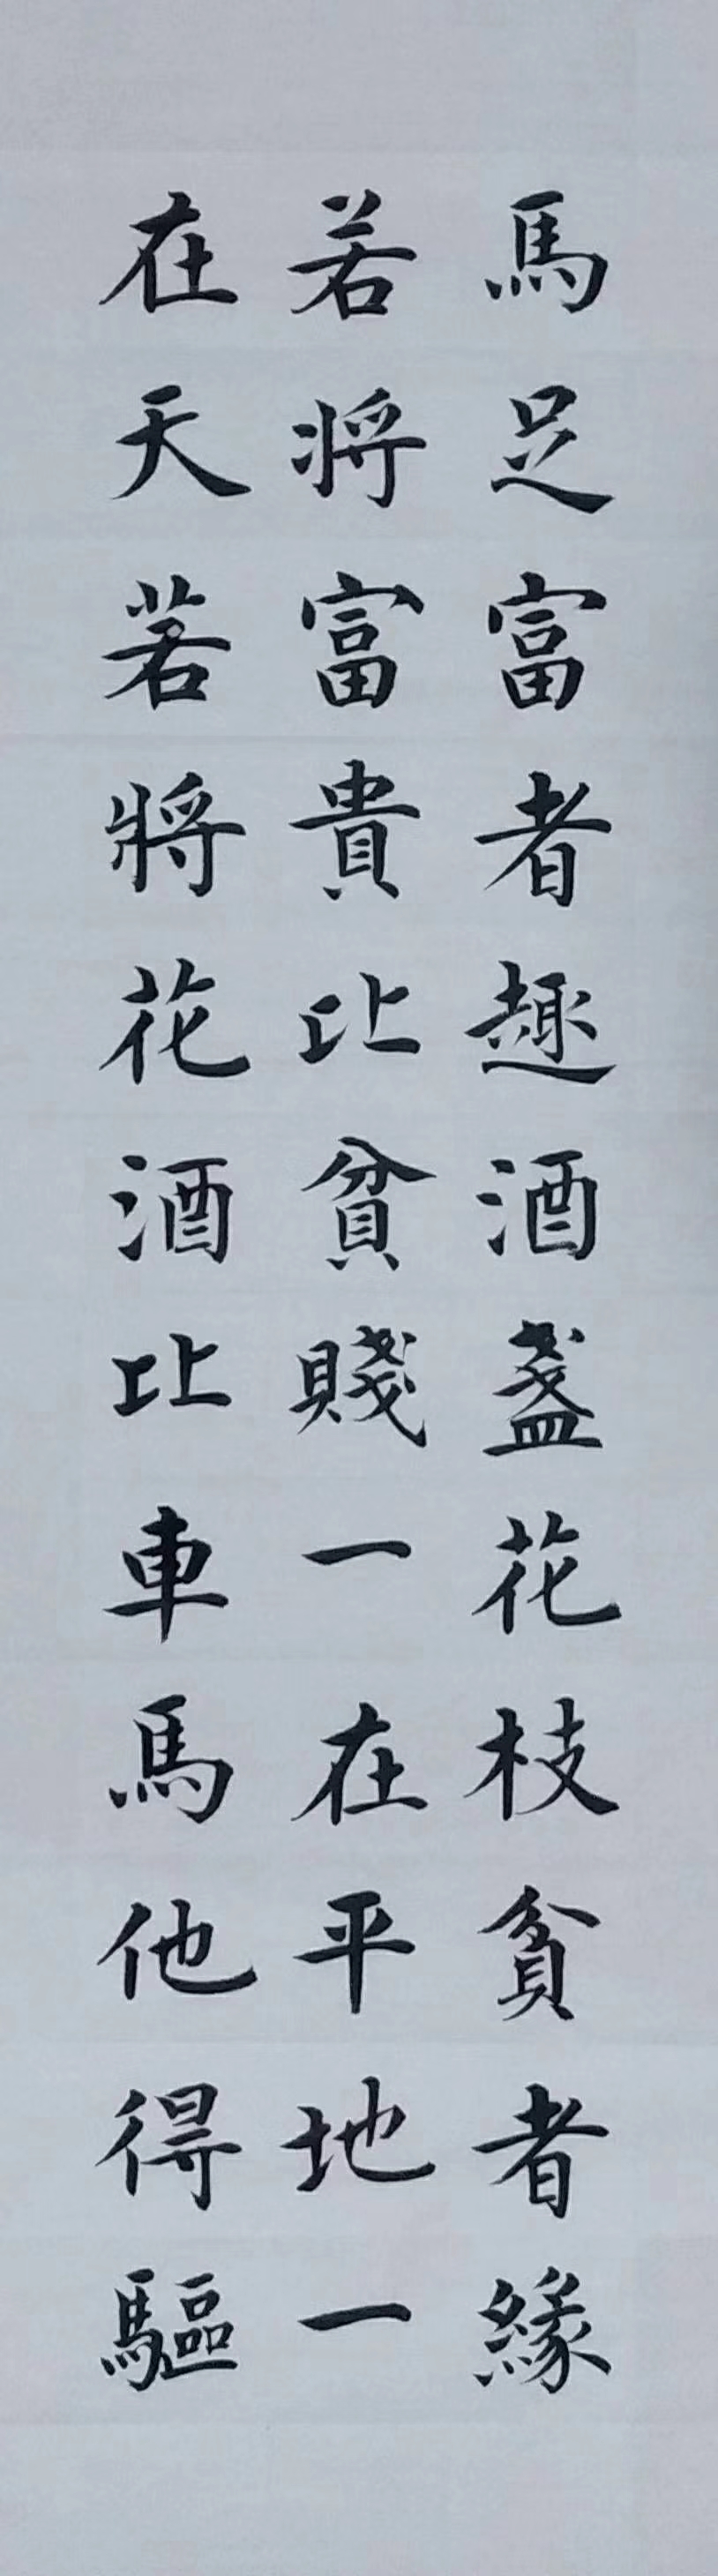 馬足富者趣酒盞花枝貧者緣
若將富貴比貧賤一在平地一
在天若將花酒比車馬他得驅